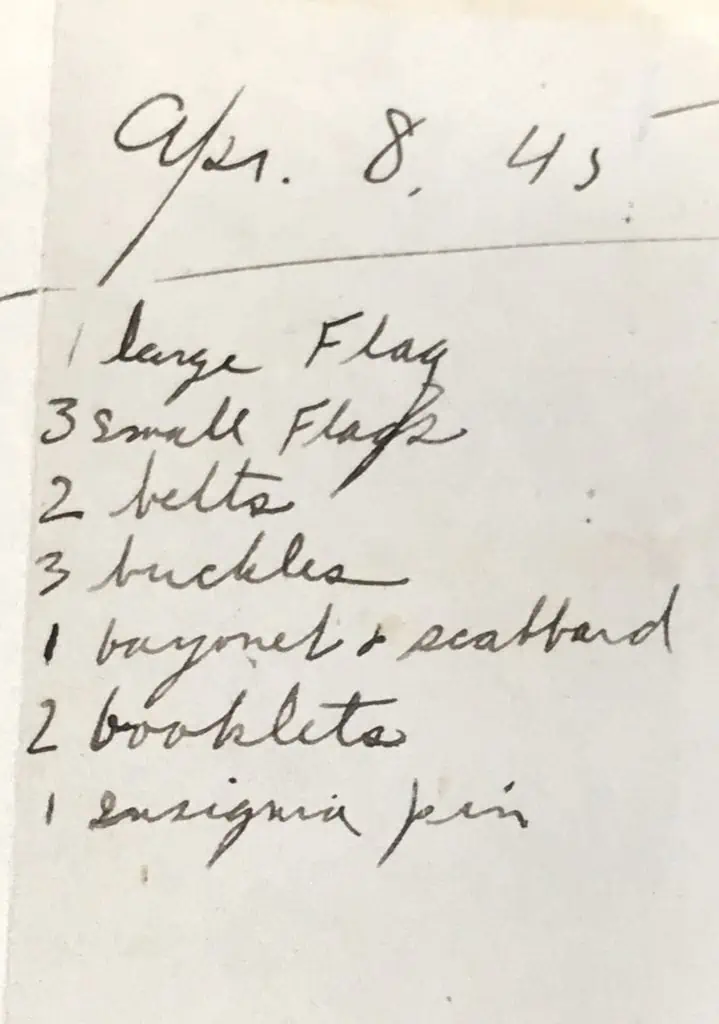 Apr. 8, 45
1 large Flag
3 small Flags
2 belts
3 buckles
1 bayonet & scabbard
2 booklets
1 insignia pin